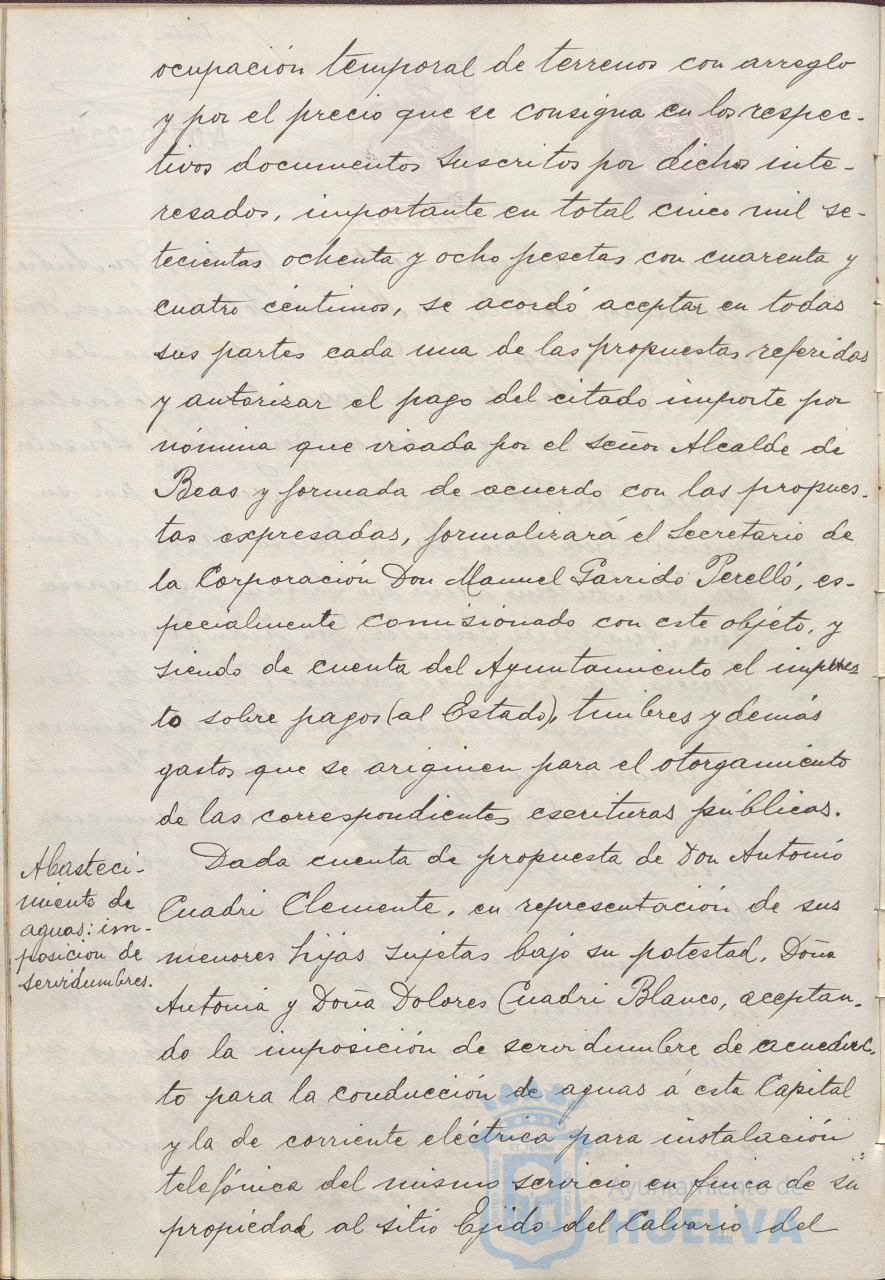 ocupación temporal de terrenos con arreglo
y por el precio que se consigna en los respec-
tivos documentos suscritos por dichos inte-
resados, importante en total cinco mil se-
tecientas ochenta y ocho pesetas con cuarenta y
cuatro céntimos, se acordó aceptar en todas
sus partes cada una de las propuestas referidas
y autorizar el pago del citado importe por
nómina que visada por el señor Alcalde de
Beas y formada de acuerdo con las propues-
tas expresadas, formalizará el Secretario de
la Corporación Don Manuel Garrido Perelló, es-
pecialmente comisionado con este objeto, y
siendo de cuenta del Ayuntamiento el impues
to sobre pagos (al Estado), timbres y demás
gastos que se originen para el otorgamiento
de las correspondientes escrituras públicas.
Abasteci-
miento de
aguas: im-
posición de
servidumbres.
Dada cuenta de propuesta de Don Antonio
Cuadri Clemente, en representación de sus
menores hijas sujetas bajo su potestad, Doña
Antonia y Doña Dolores Cuadri Blanco, aceptan-
do la imposición de servidumbre de acueduc-
to para la conducción de aguas á esta Capital
y la de corriente eléctrica para instalación
telefónica del mismo servicio en finca de su
propiedad al sitio Ejido del Calvario del
Ayuntamiento de
HUELVA